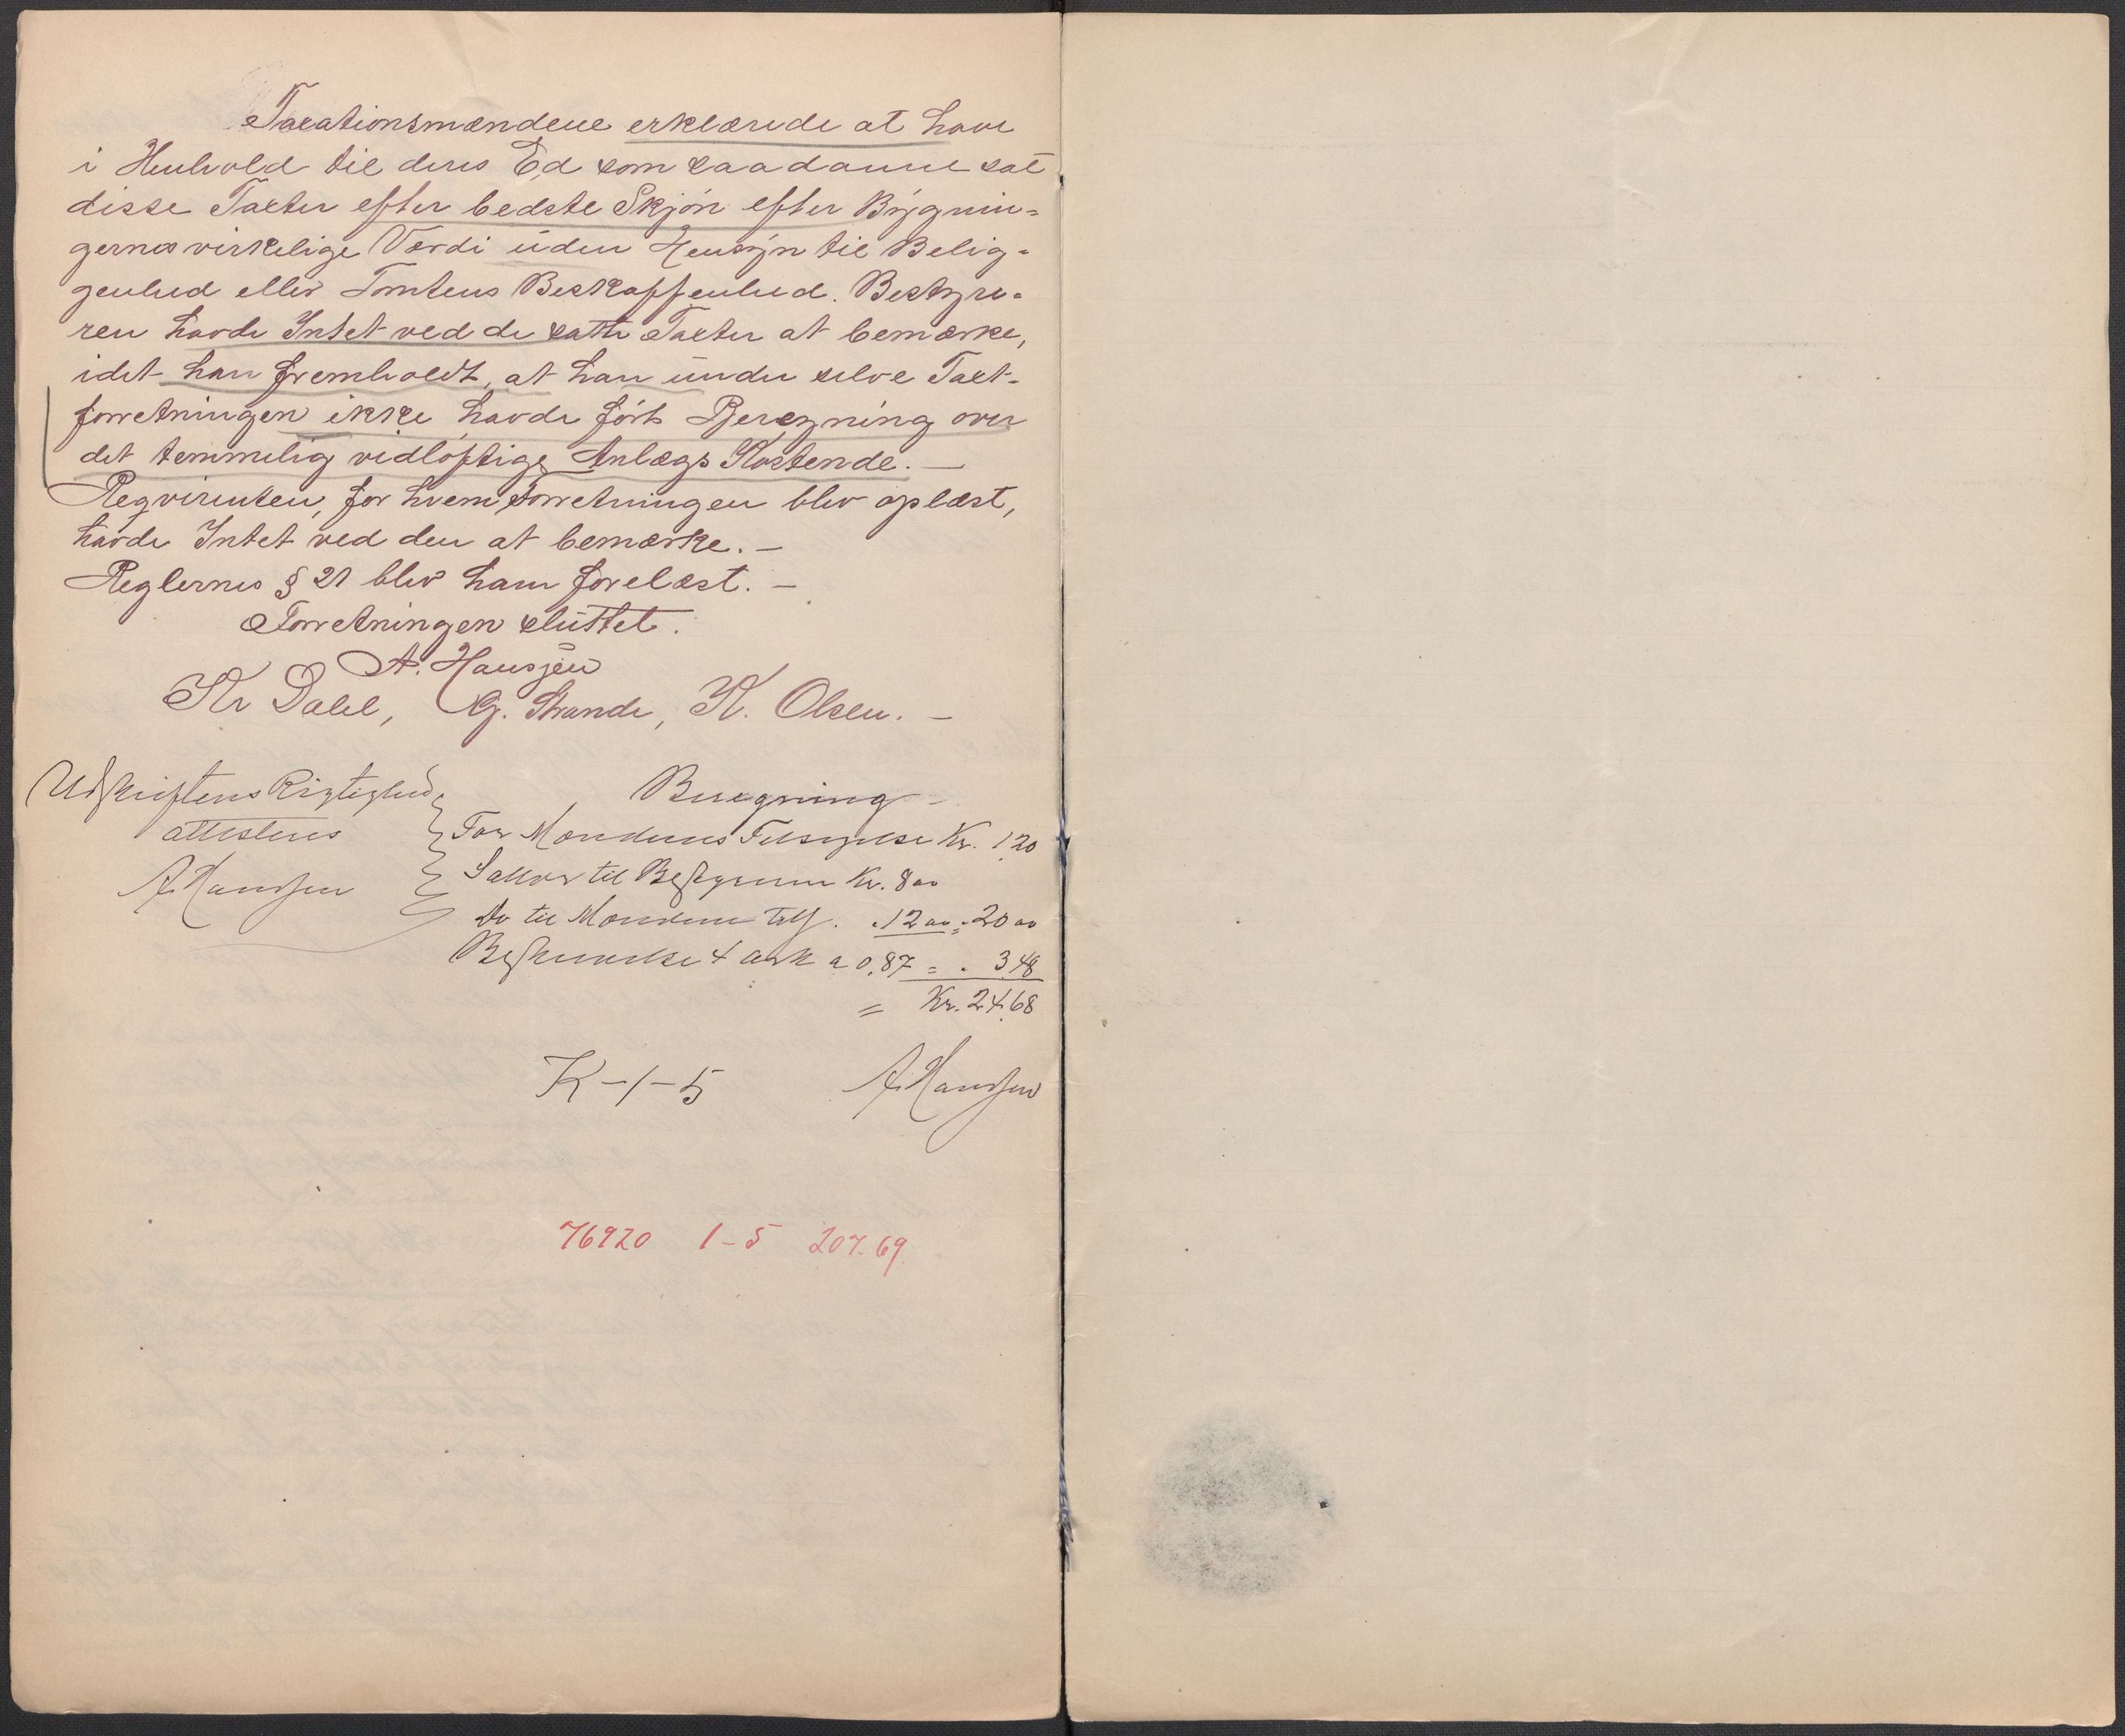 Taxationsmændene erklærede at have
i Henhold til deres Ed som saadanne sat
disse Taxter efter bedste Skjøn efter Bygnin-
gernes virkelige Værdi uden Hensyn til Belig-
genhed eller Tomtens Beskaffenhed. Bestyre-
ren havde Intet ved de satte Taxter at bemærke,
idet han fremholdt, at han under selve Taxt-
forretningen ikke havde ført Beregning over
det temmelig vidløftige Anlægs Kostende. —
Reqvirenten, for hvem Forretningen blev oplæst,
havde Intet ved den at bemærke. —
Reglernes § 21 blev ham forelæst. —
Forretningen sluttet.
A. Hansjen
Kr Dahl, G. Strande, K. Olsen. —
Udskriftens Rigtighed
attesteres
A Handsen
Beregning
For Mændenes Tilsigelse Kr. 1.20
Salær til Bestyreren Kr. 8 00
Do til Mændene Tils. " 12 00 = 20 00
Beskrivelse 4 ark a 0,87 = " 3.48
= Kr. 24.68
K-1-5 A Handsen
76920 1-5 207.69